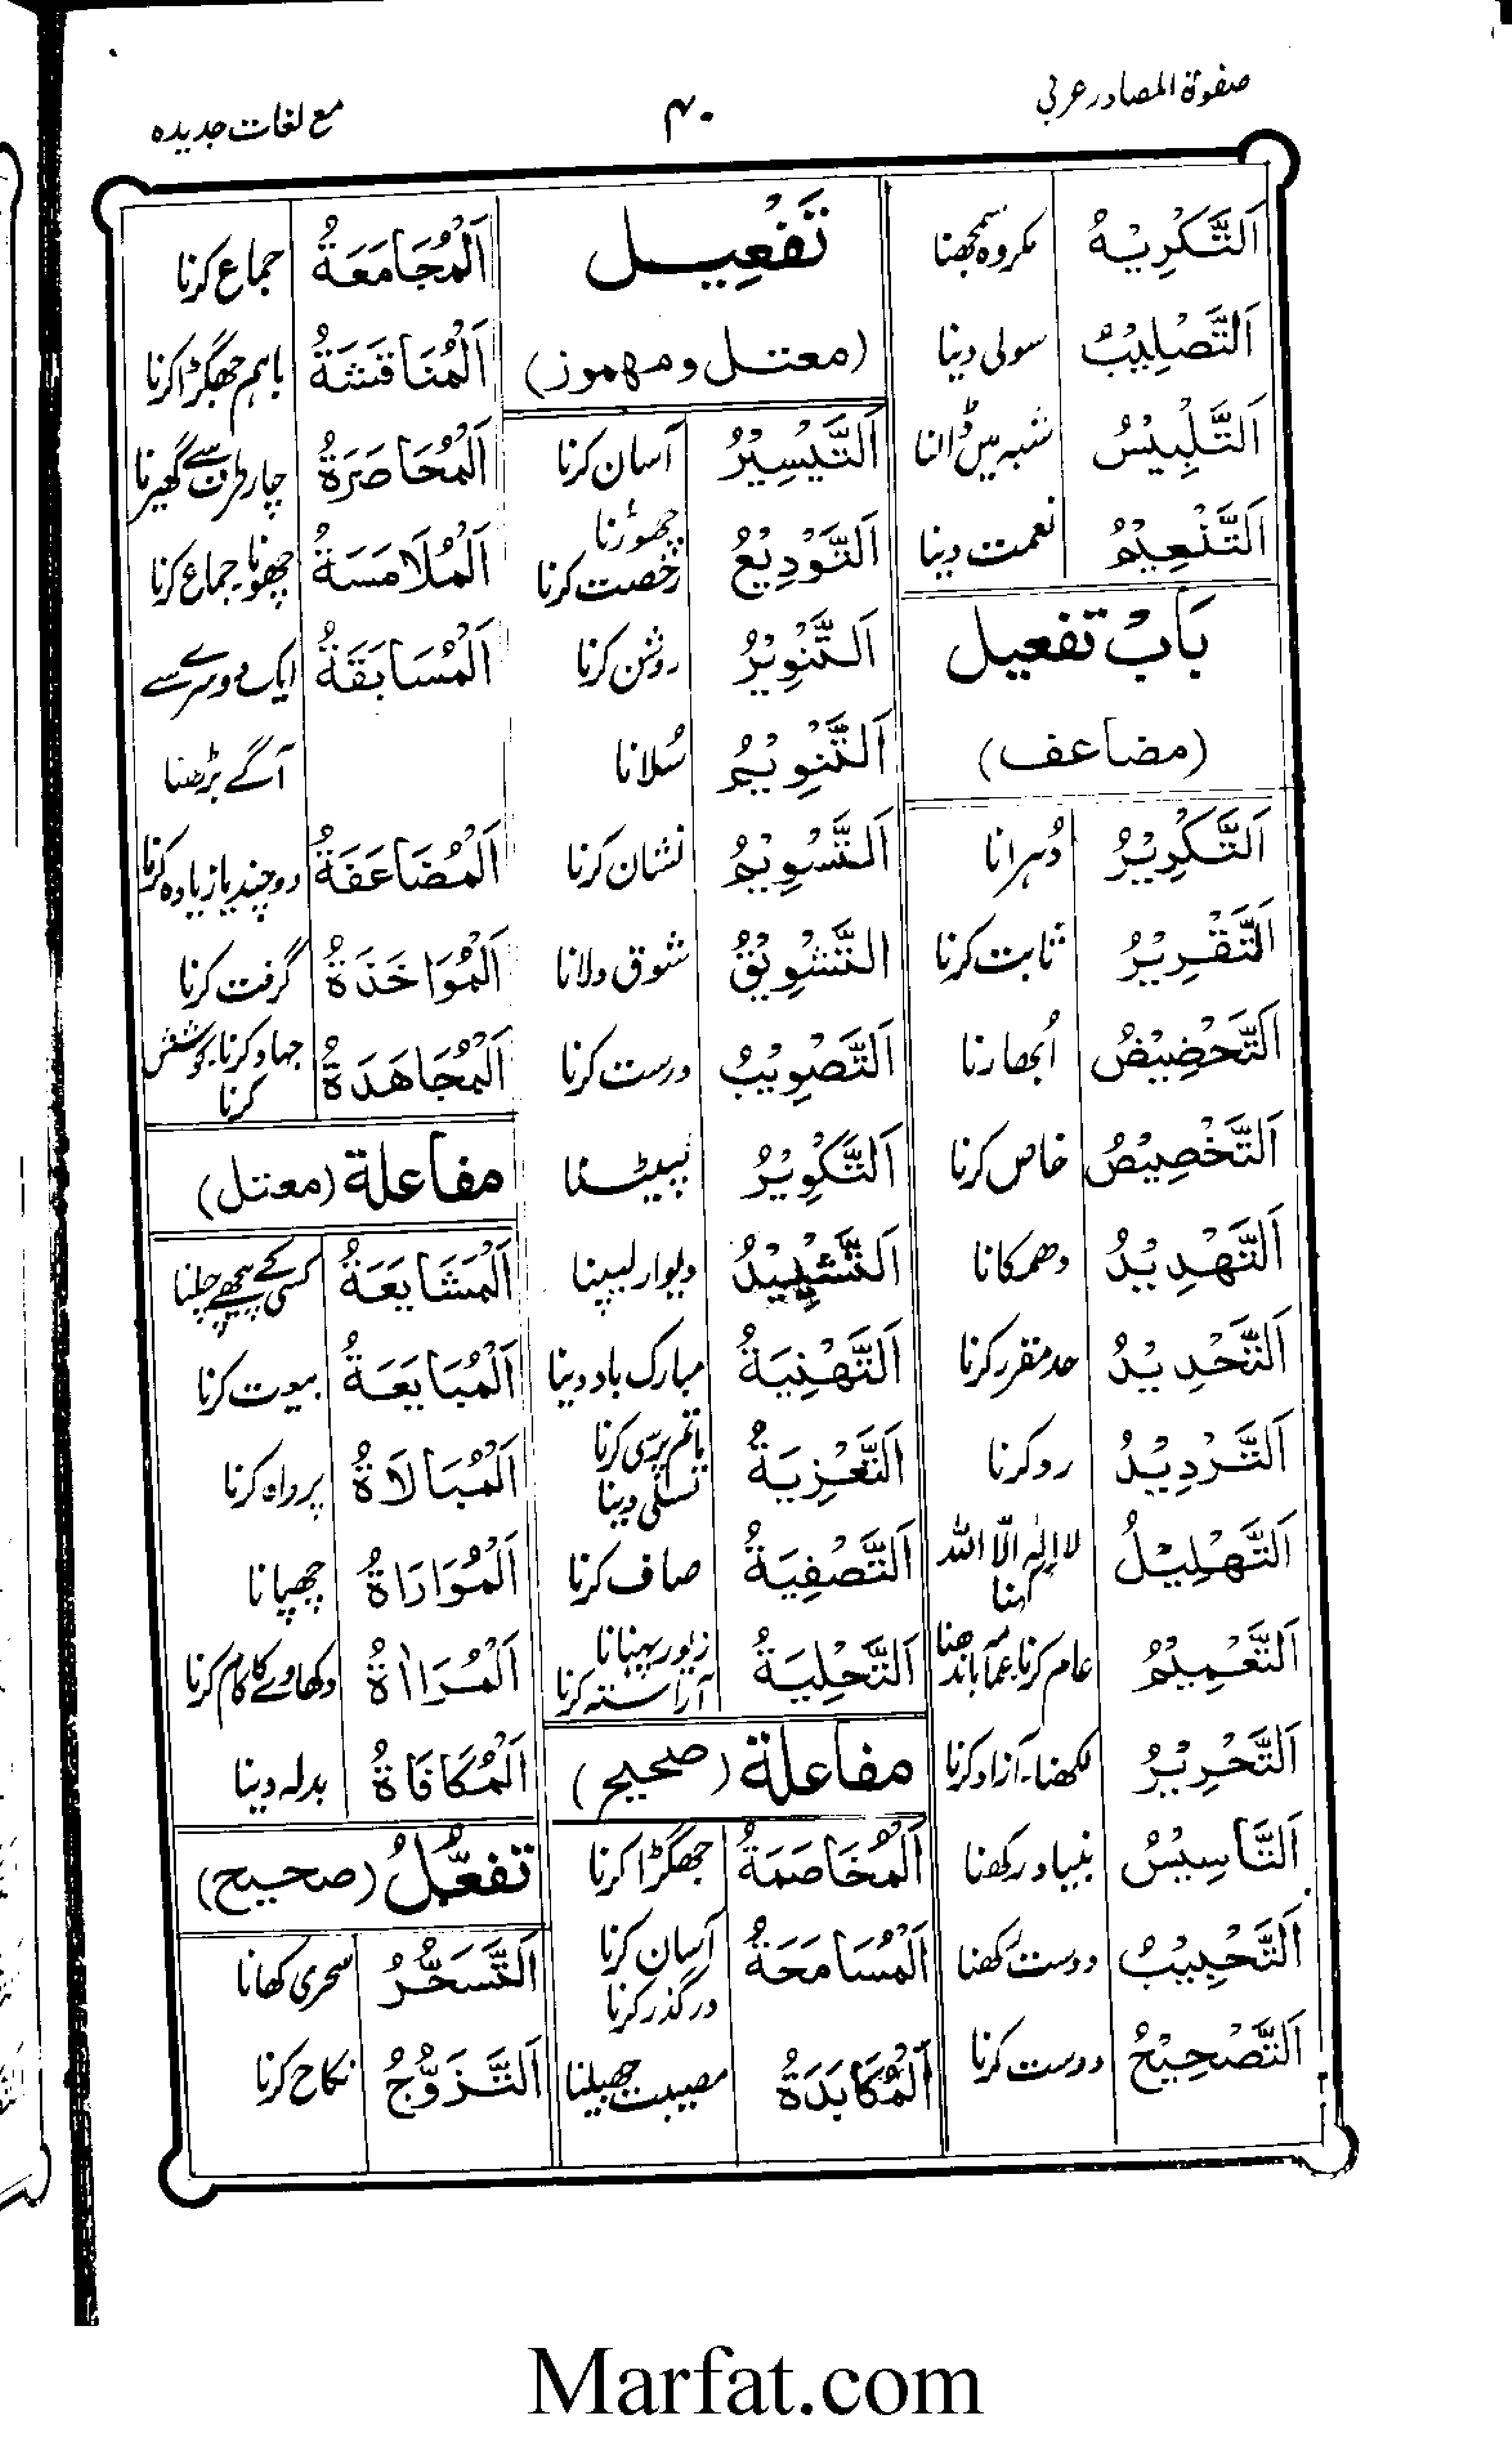 صفوۃ المصادر عربی
۴۰
مع لغات جدیدہ
اَلتَّكْرِيْهُ مکروہ سمجھنا
اَلتَّصْلِيْبُ سولی دینا
اَلتَّلْبِيْسُ شبہ میں ڈالنا
اَلتَّنْعِيْمُ نعمت دینا
بَابُ تفعیل
(مضاعف)
اَلتَّكْرِيْرُ دُہرانا
اَلتَّقْرِيْرُ ثابت کرنا
اَلتَّحْضِيْضُ اُبھارنا
اَلتَّخْصِيْصُ خاص کرنا
اَلتَّهْدِيْدُ دھمکانا
اَلتَّحْدِيْدُ حد مقرر کرنا
اَلتَّرْدِيْدُ رد کرنا
اَلتَّهْلِيْلُ لا الٰہ الّا اللہ
کہنا
اَلتَّعْمِيْمُ عام کرنا۔عمامہ باندھنا
اَلتَّحْرِيْرُ لکھنا۔آزاد کرنا
اَلتَّاسِيْسُ بنیاد رکھنا
اَلتَّحْبِيْبُ دوست رکھنا
اَلتَّصْحِيْحُ درست کرنا
تَفْعِيل
(معتل و مهموز)
اَلتَّيْسِيْرُ آسان کرنا
اَلتَّوْدِيْعُ چھوڑنا
رخصت کرنا
اَلتَّنْوِيْرُ روشن کرنا
اَلتَّنْوِيْمُ سُلانا
اَلتَّسْوِيْمُ نشان کرنا
التَّشْوِيْقُ شوق دلانا
اَلتَّصْوِيْبُ درست کرنا
اَلتَّكْوِيْرُ لپیٹنا
اَلتَّشْيِيْدُ دیوار لیپنا
اَلتَّهْنِيَةُ مبارک باد دینا
اَلتَّعْزِيَةُ ماتم پرسی کرنا
تسلّی دینا
اَلتَّصْفِيَةُ صاف کرنا
اَلتَّحْلِيَةُ زیور پہنانا
آراستہ کرنا
مفاعلة (صحیح)
اَلْمُخَاصَمَةُ جھگڑا کرنا
اَلْمُسَامَحَةُ آسان کرنا
درگذر کرنا
اَلْمُكَابَدَةُ مصیبت جھیلنا
اَلْمُجَامَعَةُ جماع کرنا
اَلْمُنَاقَشَةُ باہم جھگڑا کرنا
اَلْمُحَاصَرَةُ چار طرف سے گھیرنا
اَلْمُلَامَسَةُ چھونا۔جماع کرنا
اَلْمُسَابَقَةُ ایک دوسرے سے
آگے بڑھنا
اَلْمُضَاعَفَةُ دوچند یا زیادہ کرنا
اَلْمُوَاخَذَةُ گرفت کرنا
اَلْمُجَاهَدَةُ جہاد کرنا۔کوشش
کرنا
مفاعلة (معتل)
اَلْمَشَايَعَةُ کسی کے پیچھے چلنا
اَلْمُبَايَعَةُ بیعت کرنا
اَلْمُبَالَاةُ پرواہ کرنا
اَلْمُوَارَاةُ چھپانا
اَلْمُرَااٰةُ دکھاوے کا کام کرنا
اَلْمُكَافَاةُ بدلہ دینا
تفعُّلُ (صحیح)
اَلتَّسَحُّرُ سحری کھانا
اَلتَّزَوُّجُ نکاح کرنا
Marfat.com